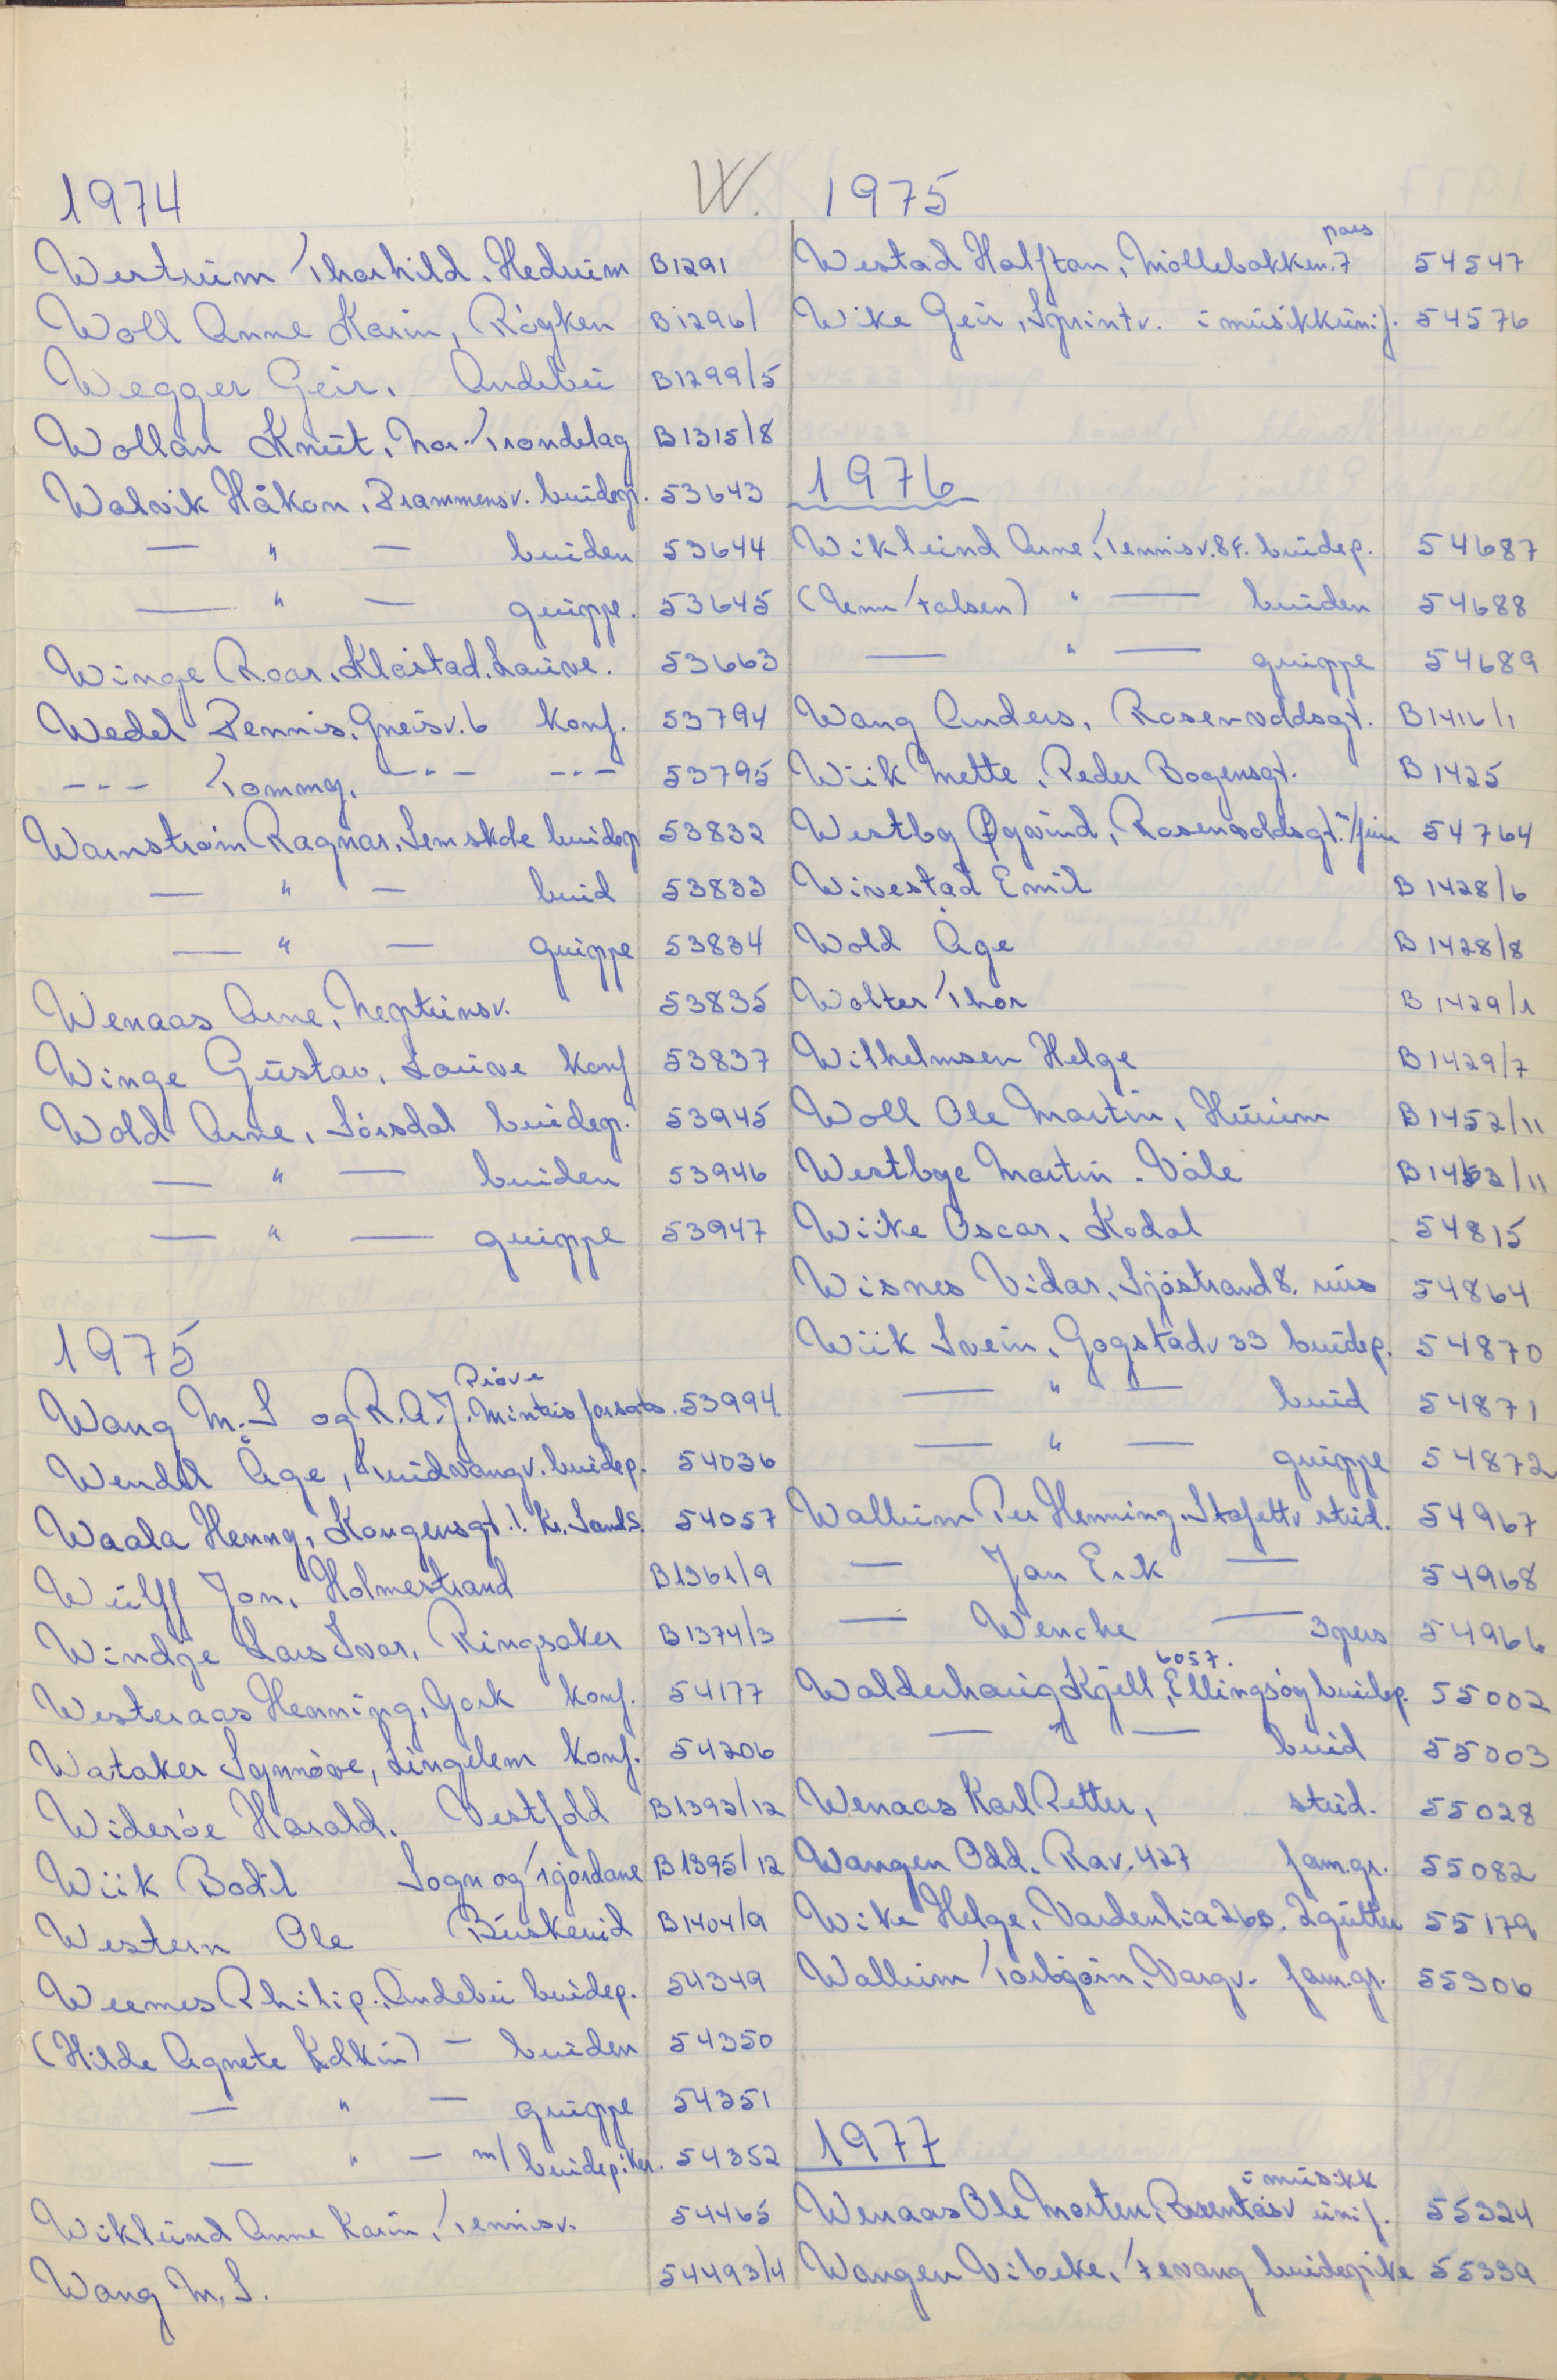 W.
1974
Westrum Thorhild. Hedrum B1291
Woll Anne Karin, Røyken B1296/
Wegger Geir. Andebu B1299/5
Wollan Knut. Nor-Trøndelag B1315/8
Walvik Håkon. Drammensv. brudep. 53643
— " — bruden 53644
— " — gruppe. 53645
Winge Roar. Klåstad. Lauve. 53663
Wedel Dennis. Gneisv. 6 konf. 53794
--- Tommy. -"- --- 53795
Warnstrøm Ragnar. Lemskole brudep 53832
— " — brud 53833
— " — gruppe 53834
Wenaas Arne, Neptunsv. 53835
Winge Gustav. Lauve konf 53837
Wold Arne, Lørsdal brudep. 53945
— " — bruden 53946
— " — gruppe 53947
1975
Wang M.L og R.A.J. Prøve forsats. 53994
Wendel Åge, Trudvangv. brudep. 54036
Waala Henny, Kongensgt. 1. Kr.Sands. 54057
Wulff Jon. Holmestrand B1361/9
Windje Lars Ivar, Ringsaker B1374/3
Westeraas Henning, York konf. 54177
Wataker Synnøve, Lingelem konf. 54206
Widerøe Harald. Vestfold B1393/12
Wiik Bodil Sogn og Fjordane B1395/12
Western Ole Buskerud B1404/9
Weemes Philip. Andebu brudep. 54349
(Hilde Agnete) — bruden 54350
— " — gruppe 54351
— " — m/ brudepiker. 54352
Wiklund Anne Karin, Tennisv. 54465
Wang M.L. 54493/4
1975
Westad Halfdan, Møllebakken. 7 pass 54547
Wike Geir, Sprintv. i musikkunif. 54576
1976
Wiklund Arne, Tennisv. 8F. brudep. 54687
(Unn Falsen) " — bruden 54688
— " — gruppe 54689
Wang Anders, Rosenvoldsgt. B1416/1
Wiik Mette, Peder Bogensgt. B1425
Westby Øyvind, Rosenvoldsgt. 54764
Wivestad Emil B1428/6
Wold Åge B1428/8
Wolter Thor B1429/1
Wilhelmsen Helge B1429/7
Woll Ole Martin, Hurum B1452/11
Westbye Martin. Våle B1453/11
Wiike Oscar. Kodal 54815
Wisnes Vidar. Sjøstrand 8. rus 54864
Wiik Svein, Gogstadv 33 brudep. 54870
— " — brud 54871
— " — gruppe 54872
Wallum Per Henning. Stafettv stud. 54967
— Jan Erik — 54968
— Wenche — 3 pers 54966
Walderhaug Kjell, 6057. Ellingsøy brudep. 55002
— " — brud 55003
Wenaas Karl Petter, stud. 55028
Wangen Odd. Rav. 427 fam.gr. 55082
Wike Helge, Vardenlia 26B. 2 gutter 55179
Wallum Torbjørn. Vargv. fam.gr. 55306
1977
Wenaas Ole Morten, i musikk unif. 55324
Wangen Vibeke. Fevang brudepike 55339